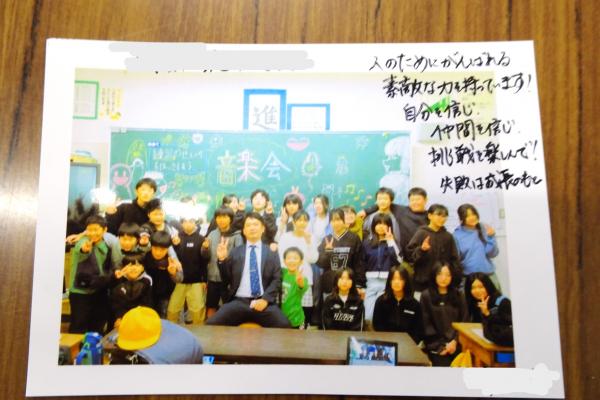 人のためにがんばれる
素敵な力を持っています!
自分を信じ.
仲間を信じ.
挑戦を楽しんで!
失敗は成長のもと
進
音楽会